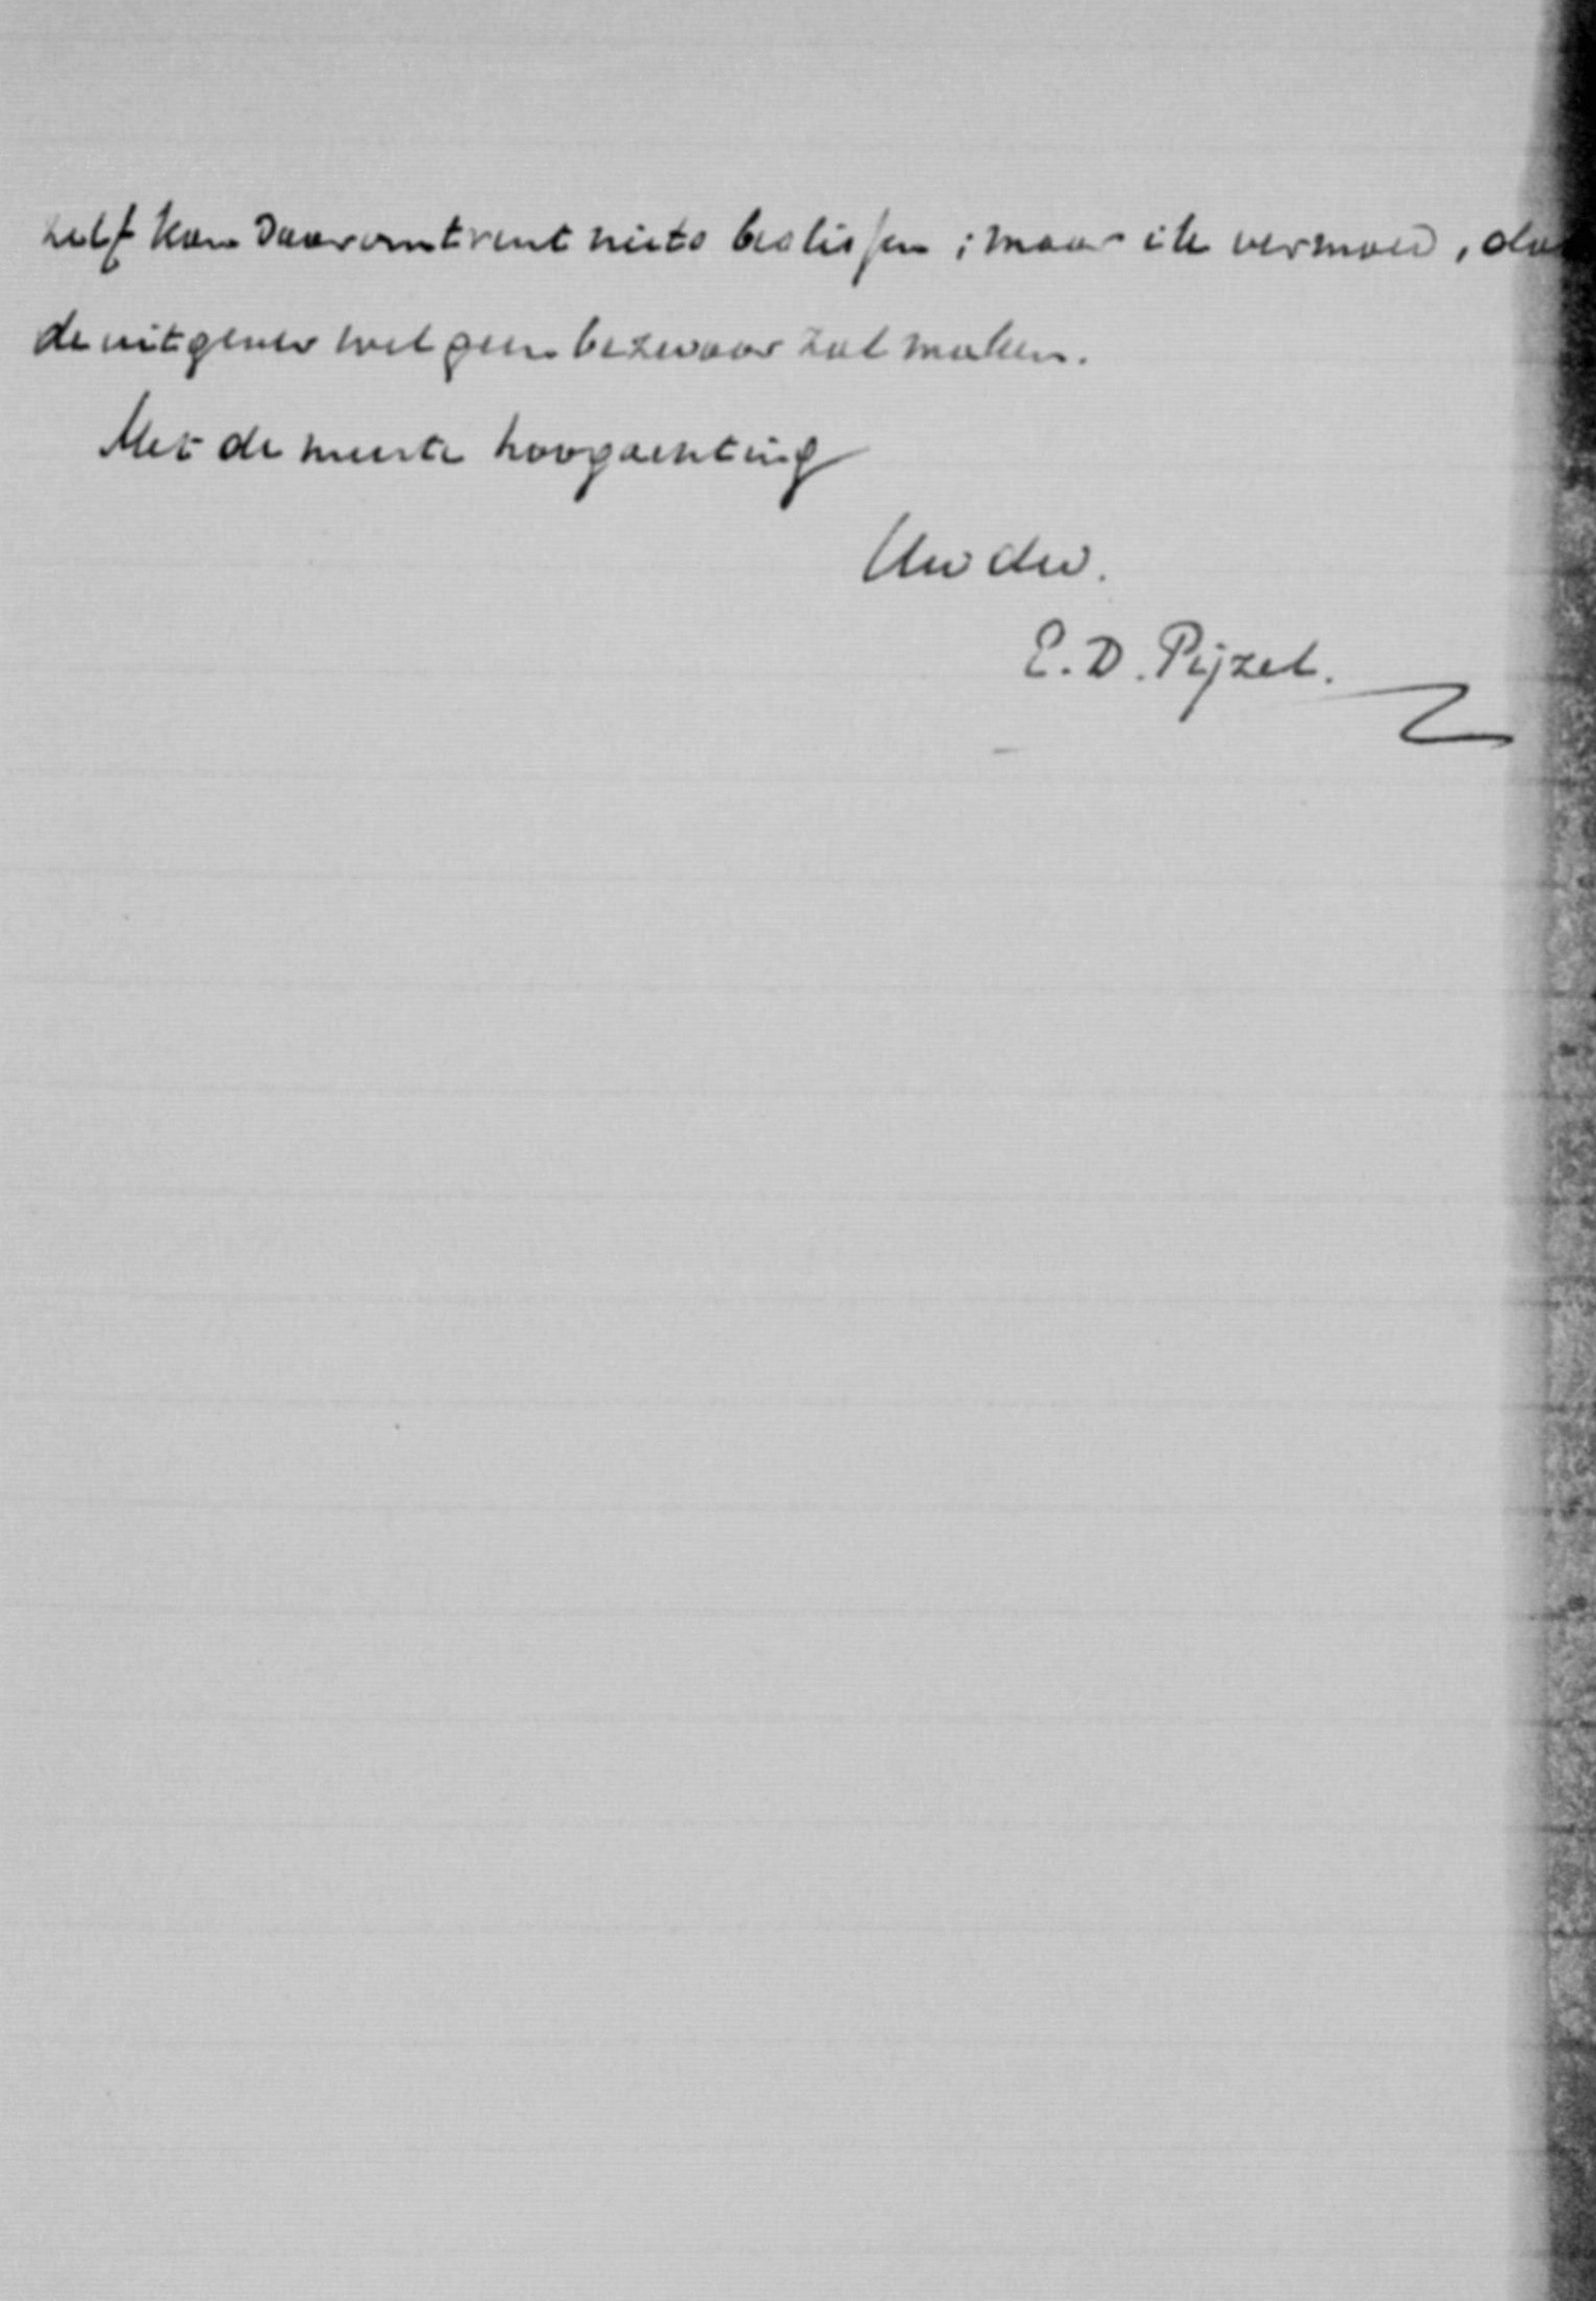 zelf kan daaromtrent niets beslissen; maar ik vermoed, da
de uitgever wel geen bezwaar zal maken.
Met de meeste hoogachting
Uw dw.
E. D. Pijzel.